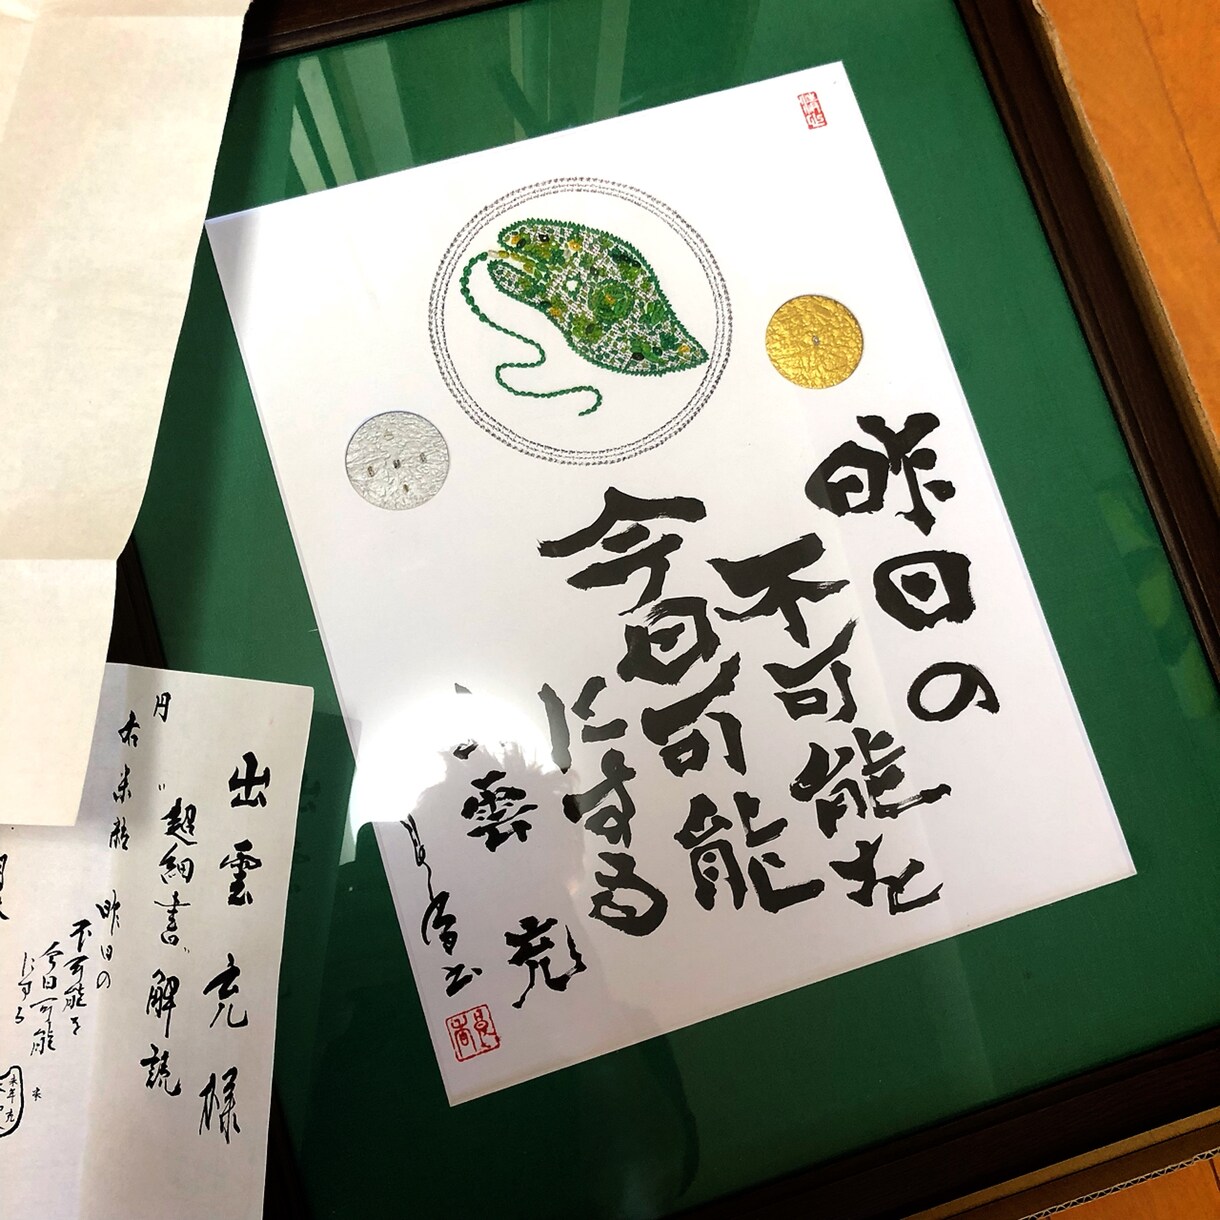 昨日の
不可能を
今日可能
にする
雲 充
出雲充様
"超細書"解読
円
右 米粒
昨日の
不可能を
今日可能
にする